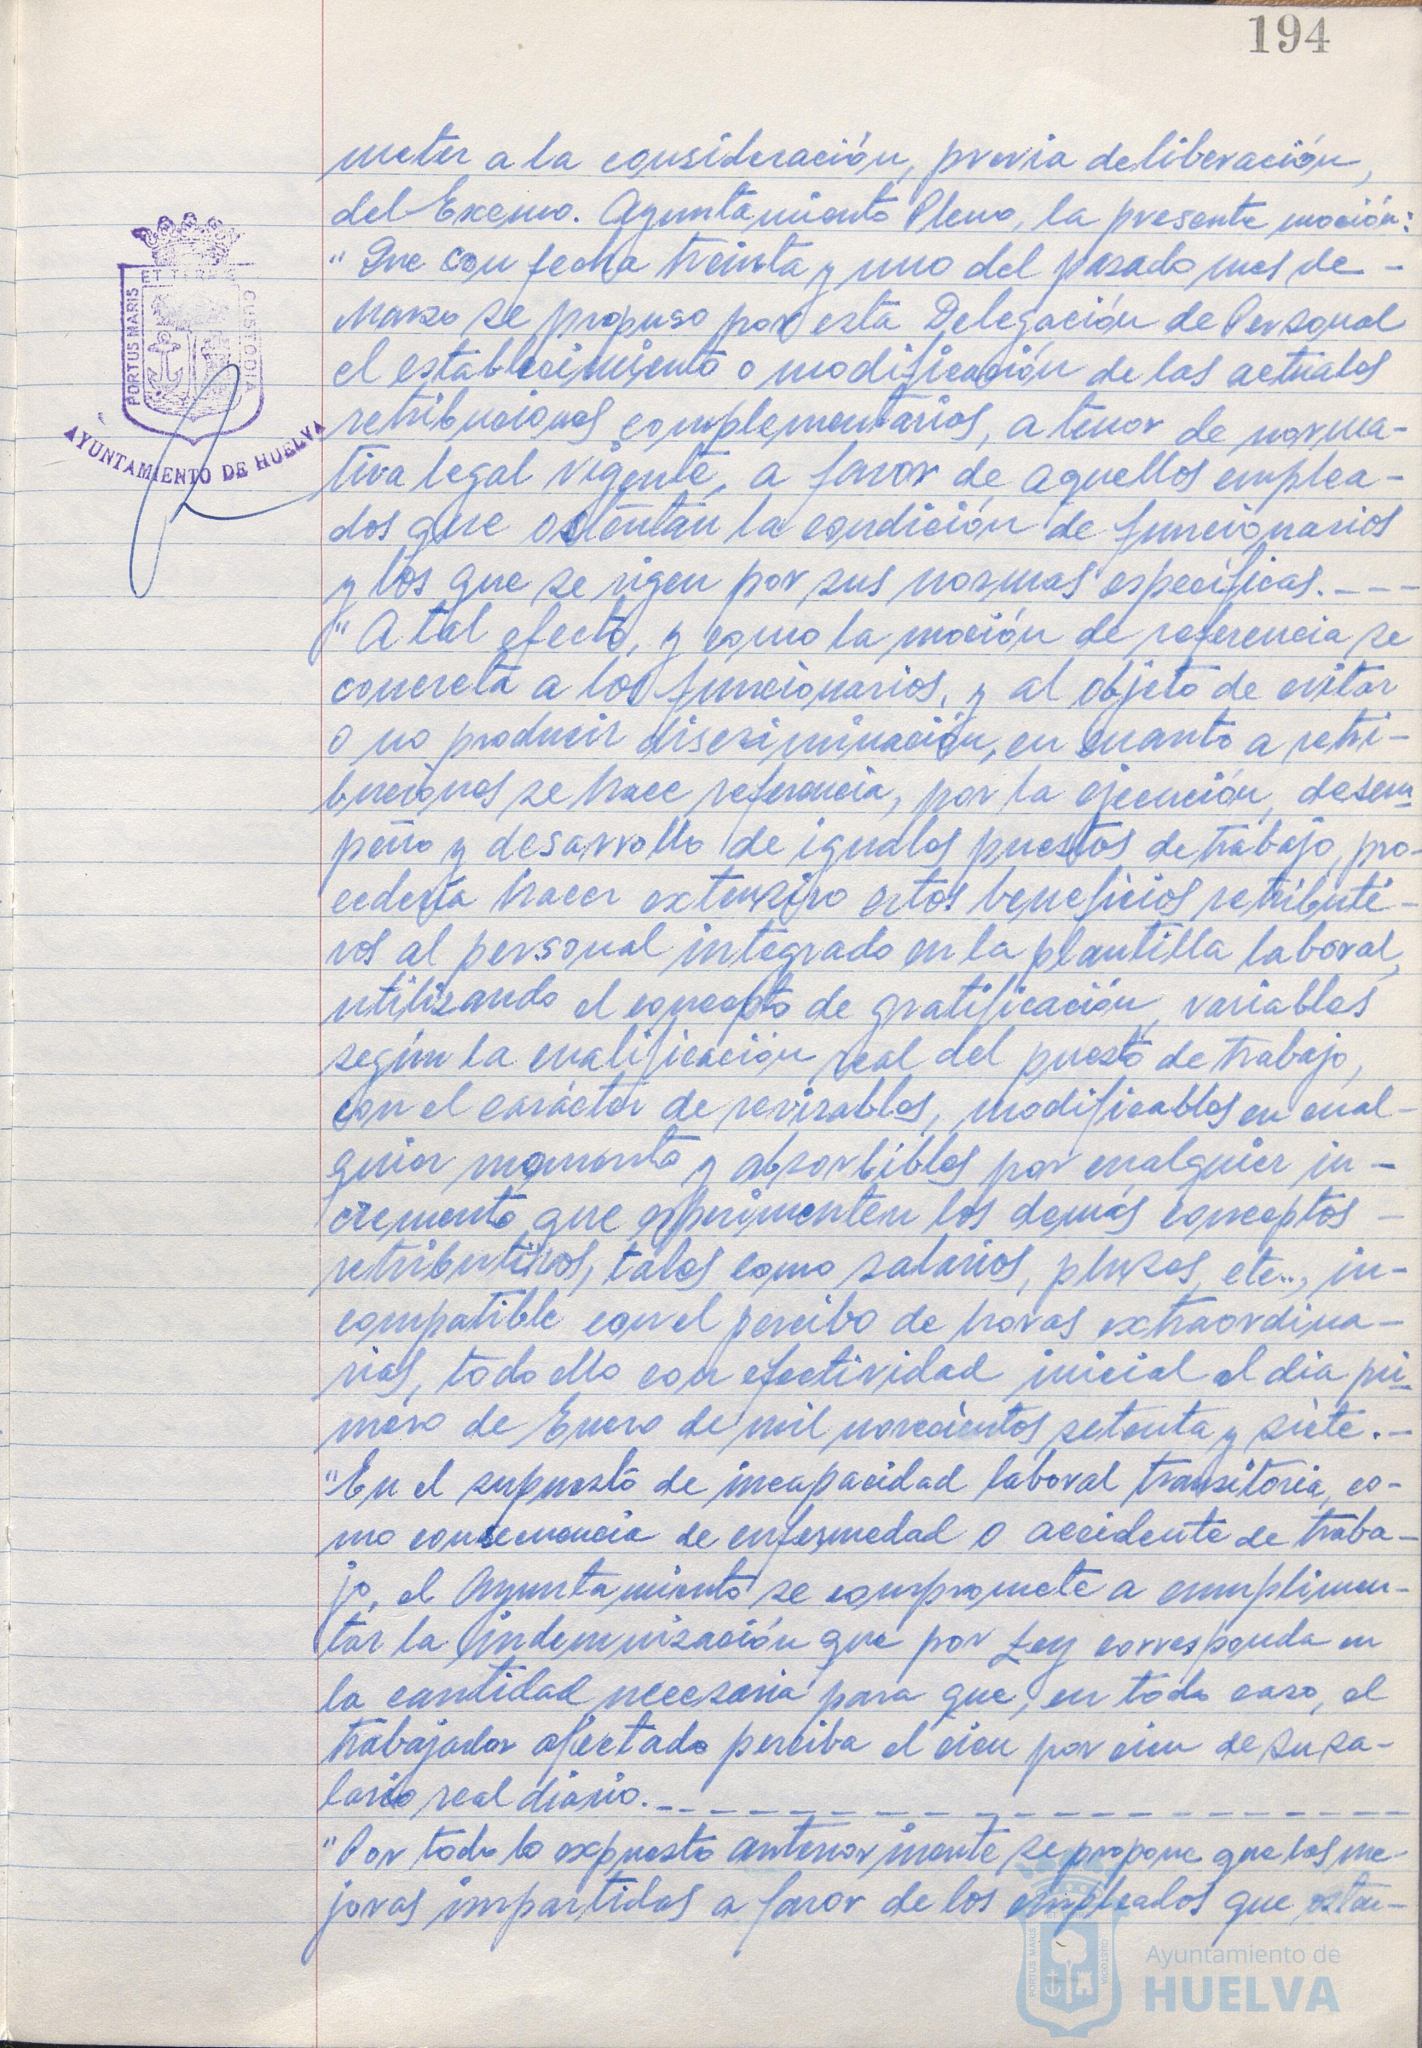 194
meter a la consideración, previa deliberación,
del Excmo. Ayuntamiento Pleno, la presente moción:
"Que con fecha treinta y uno del pasado mes de -
Marzo se propuso por esta Delegación de Personal
el establecimiento o modificación de las actuales
retribuciones complementarias, a tenor de norma-
tiva legal vigente, a favor de aquellos emplea-
dos que ostentan la condición de funcionarios
y los que se rigen por sus normas específicas.----
"A tal efecto, y como la moción de referencia se
concreta a los funcionarios, y al objeto de evitar
o no producir discriminación, en cuanto a retri-
buciones se hace referencia, por la ejecución, desem-
peño y desarrollo de iguales puestos de trabajo, pro-
cedería hacer extensivo estos beneficios retributi-
vos al personal integrado en la plantilla laboral,
utilizando el concepto de gratificación, variables
según la cualificación real del puesto de trabajo,
con el carácter de revisables, modificables en cual-
quier momento y absorbibles por cualquier in-
cremento que experimenten los demás conceptos -
retributivos, tales como salarios, pluses, etc.., in-
compatible con el percibo de horas extraordina-
rias, todo ello con efectividad inicial el dia pri-
mero de Enero de mil novecientos setenta y siete.-
"En el supuesto de incapacidad laboral transitoria, co-
mo consecuencia de enfermedad o accidente de traba-
jo, el Ayuntamiento se compromete a cumplimen-
tar la indemnización que por Ley corresponda en
la cantidad necesaria para que, en todo caso, el
trabajador afectado perciba el cien por cien de su sa-
lario real diario.-----------------
"Por todo lo expuesto anteriormente se propone que las me-
joras impartidas a favor de los empleados que osten-
PORTUS MARIS ET TERRAE CUSTODIA
AYUNTAMIENTO DE HUELVA
PORTUS MARIS CUSTODIA
Ayuntamiento de
HUELVA